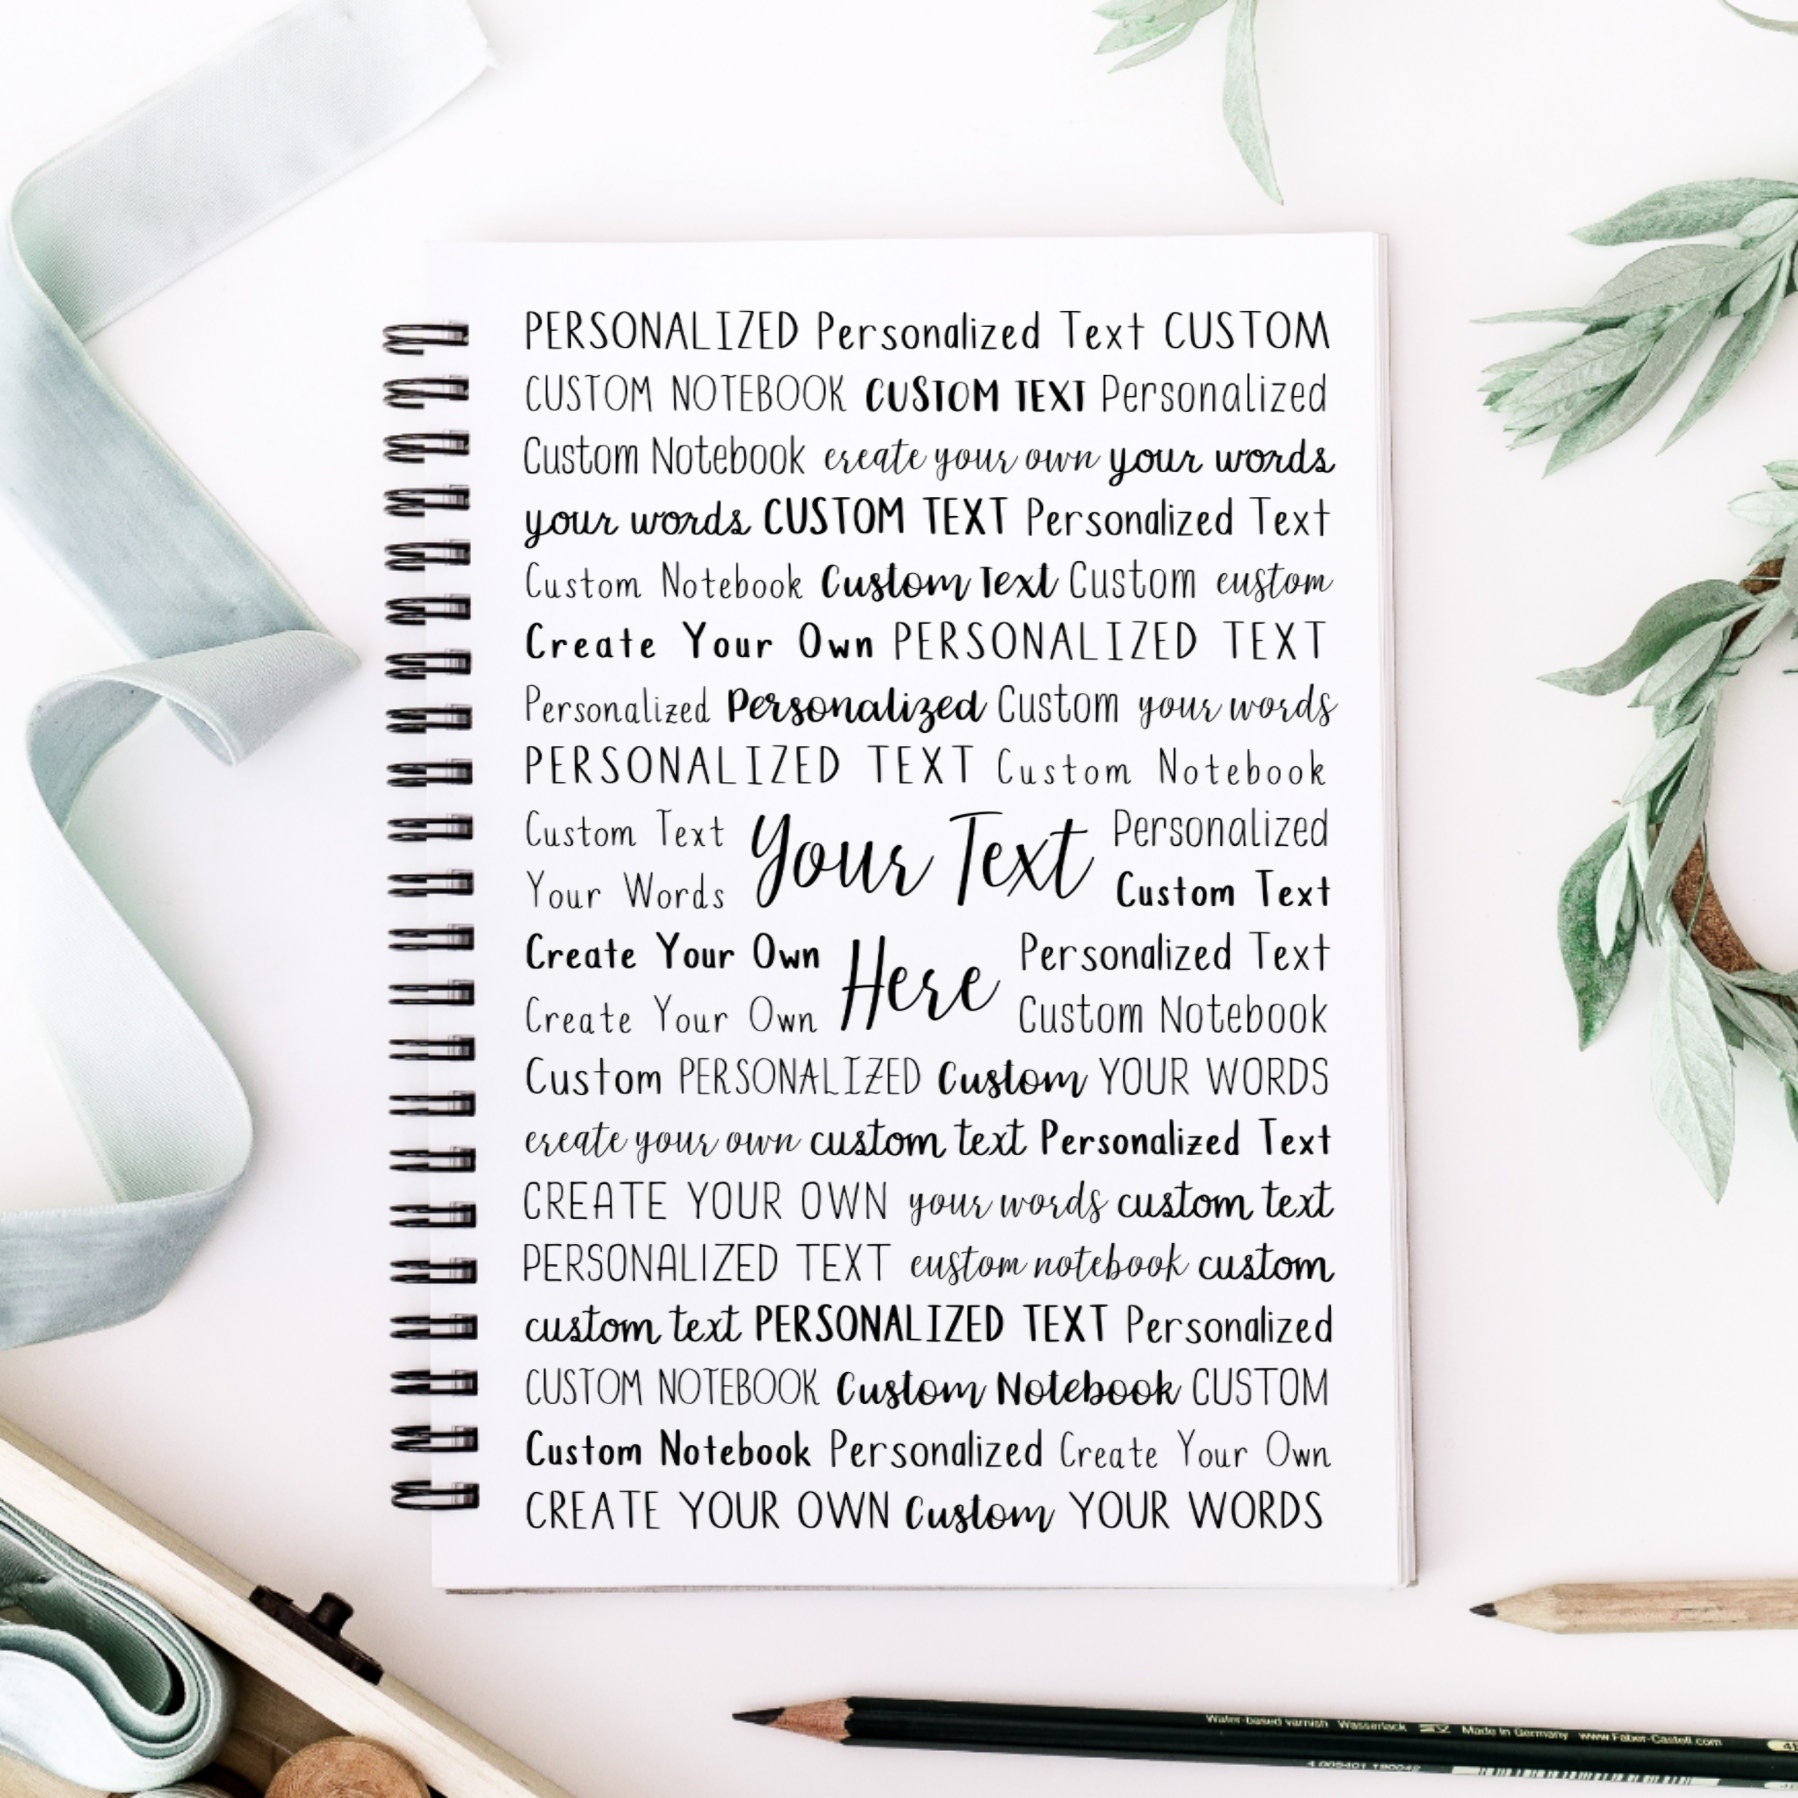 PERSONALIZED Personalized Text CUSTOM
CUSTOM NOTEBOOK CUSTOM TEXT Personalized
Custom Notebook create your own your words
your words CUSTOM TEXT Personalized Text
Custom Notebook Custom Text Custom custom
Create Your Own PERSONALIZED TEXT
Personalized Personalized Custom your words
PERSONALIZED TEXT Custom Notebook
Custom Text Your Text Personalized
Your Words Custom Text
Create Your Own Here Personalized Text
Create Your Own Custom Notebook
Custom PERSONALIZED Custom YOUR WORDS
create your own custom text Personalized Text
CREATE YOUR OWN your words custom text
PERSONALIZED TEXT custom notebook custom
custom text PERSONALIZED TEXT Personalized
CUSTOM NOTEBOOK Custom Notebook CUSTOM
Custom Notebook Personalized Create Your Own
CREATE YOUR OWN Custom YOUR WORDS
Water-based varnish Wasserlack Made in Germany www.Faber-Castell.com
4 005401 190042